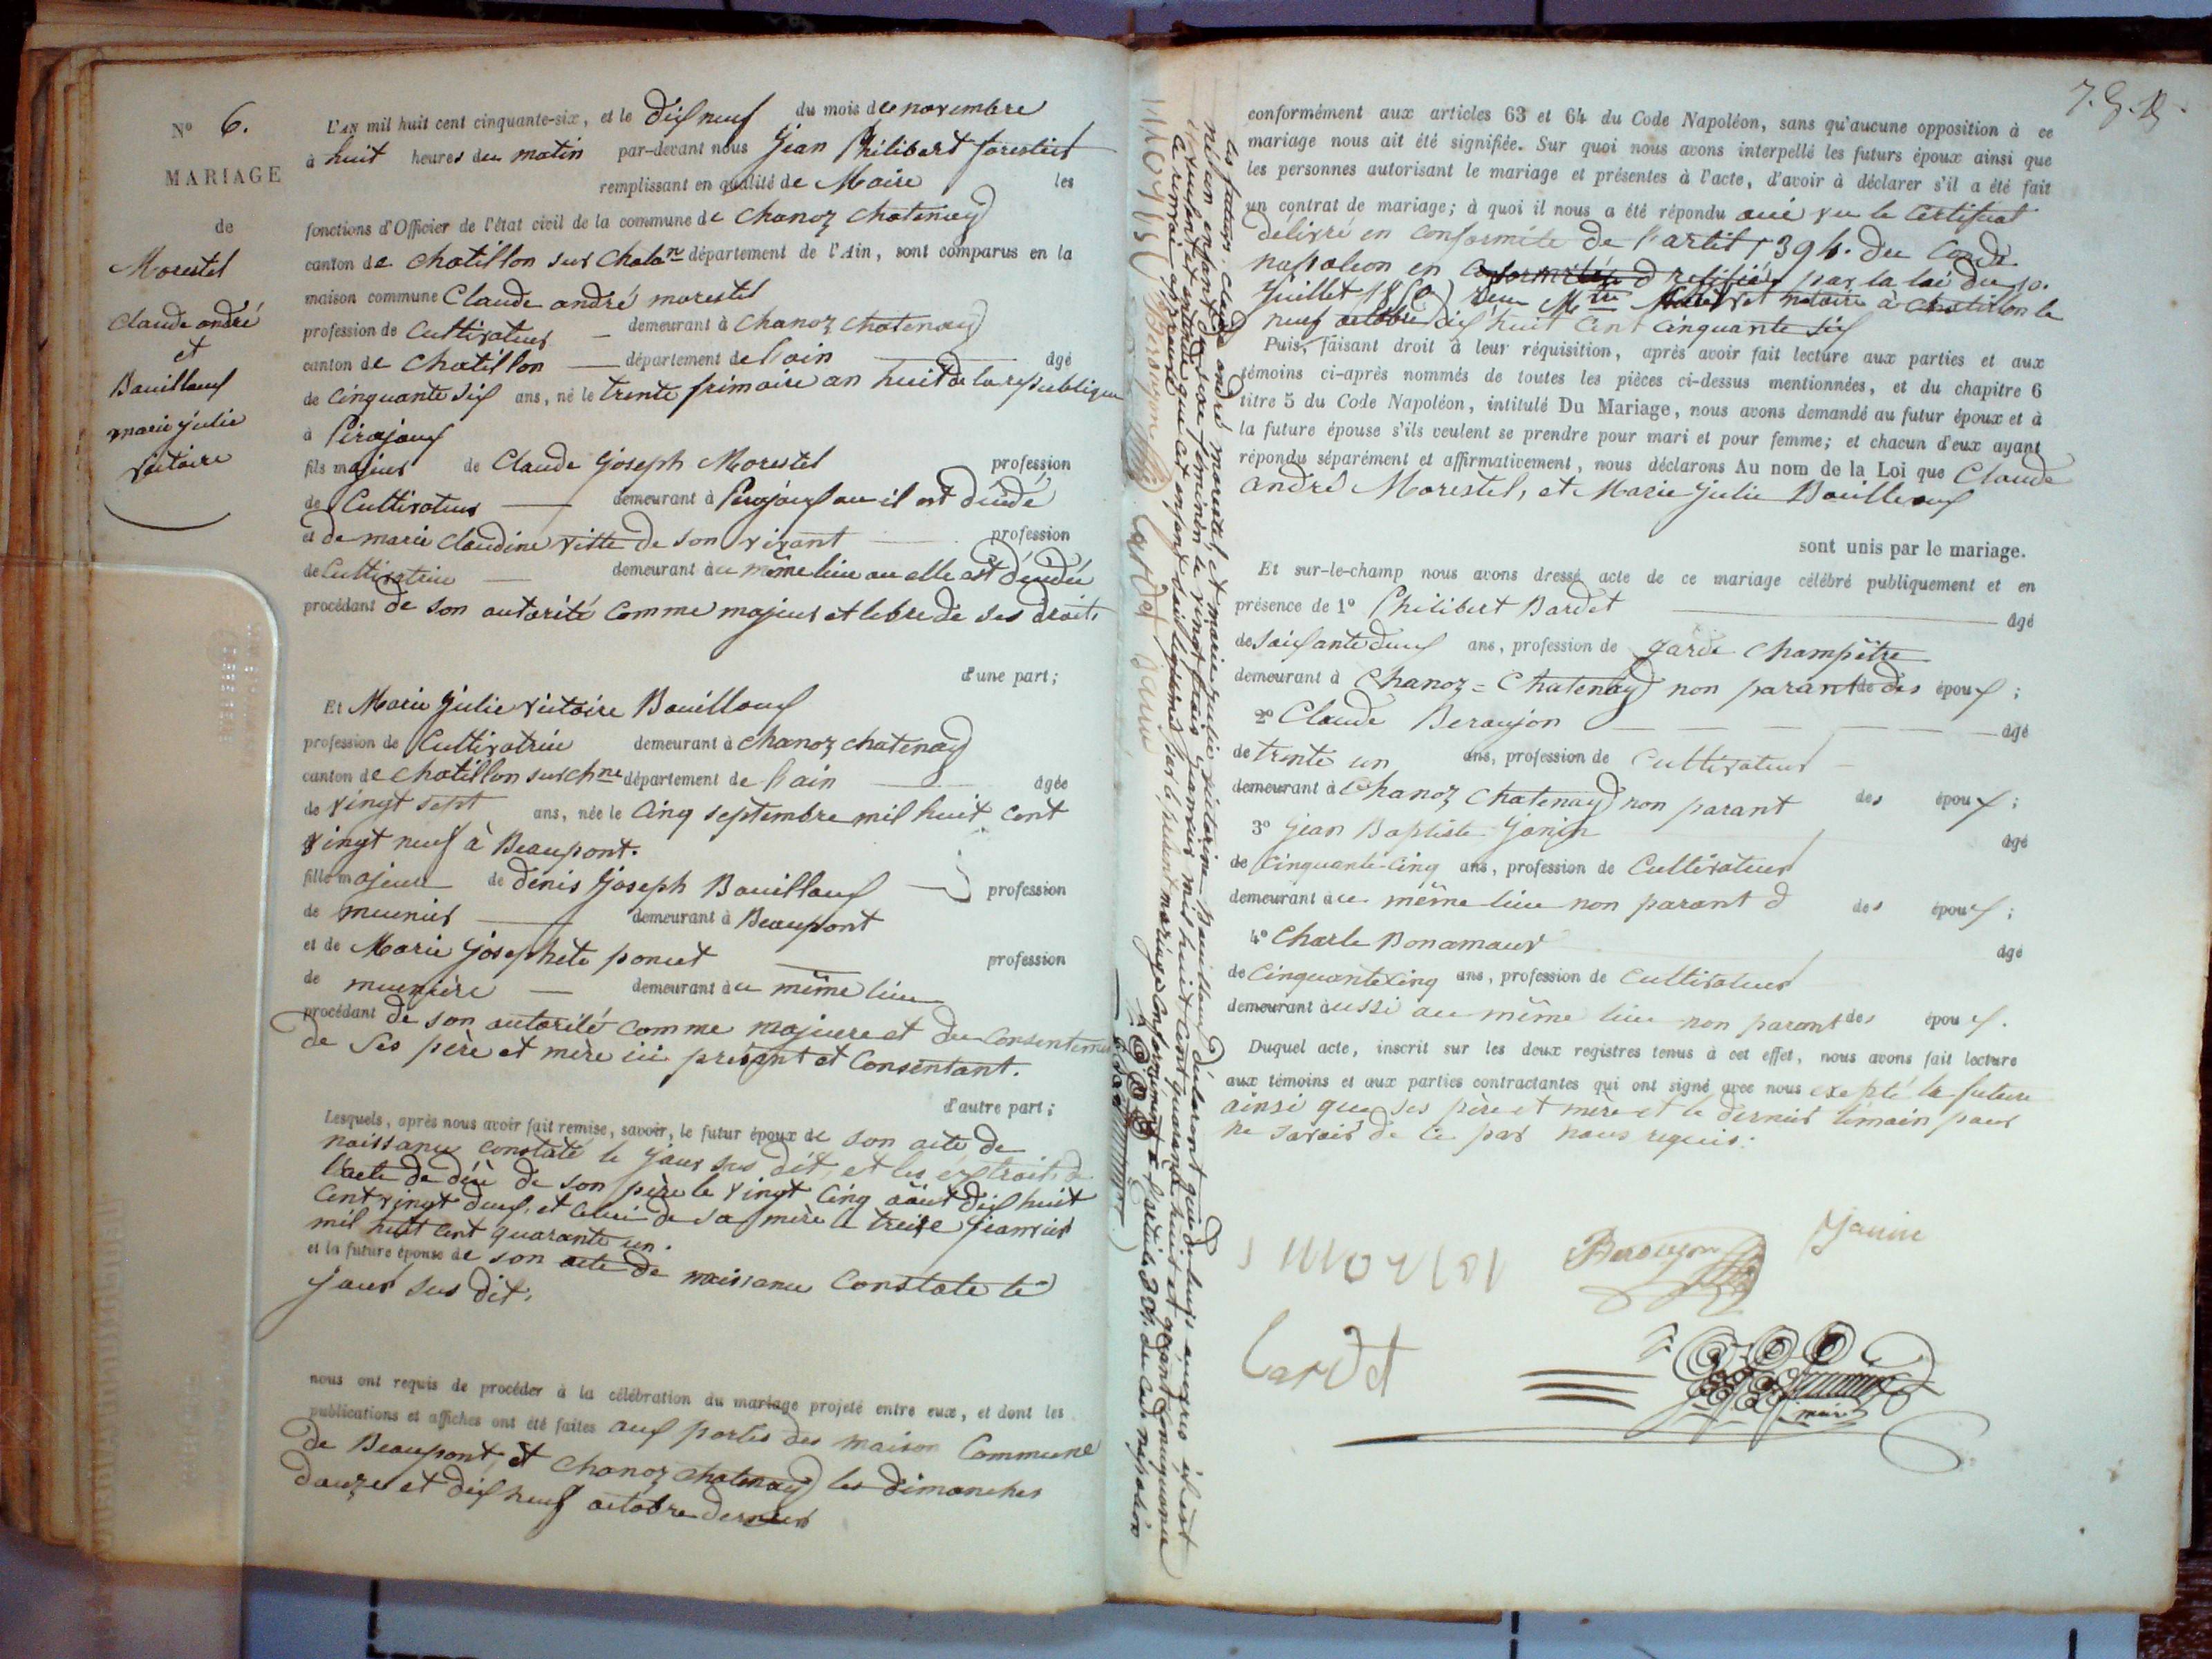 N° 6.
MARIAGE
de
Morestel
Claude andré
et
Bouilloux
marie julie
victoire
L'AN mil huit cent cinquante-six, et le dix neuf du mois de novembre
à huit heures du matin par-devant nous Jean Philibert forestier
remplissant en qualité de Maire les
fonctions d'Officier de l'état civil de la commune de Chanoz Chatenay
canton de Chatillon sur Chalarne département de l'Ain, sont comparus en la
maison commune Claude andré morestel
profession de Cultivateur demeurant à Chanoz Chatenay
canton de Chatillon département de l'ain âgé
de Cinquante six ans, né le trente frimaire an huit de la republique
à Pirajoux
fils majeur de Claude Joseph Morestel profession
de Cultivateur demeurant à Pirajoux ou il est décédé
et de marie Claudine vitte de son vivant profession
de Cultivatrice demeurant au même lieu ou elle est décédée
procédant de son autorité Comme majeur et lebre de ses droits
d'une part;
Et Marie Julie victoire Bouilloux
profession de Cultivatrice demeurant à Chanoz chatenay
canton de Chatillon sur Chne département de l'ain âgée
de vingt sept ans, née le Cinq septembre mil huit Cent
vingt neuf à Beaupont.
fille majeure de denis Joseph Bouilloux profession
de meunier demeurant à Beaupont
et de Marie Josephete poncet profession
de meunière demeurant au même lieu
procédant de son autorité Comme majeure et du Consentement
de Ses père et mère ici présent et Consentant.
d'autre part;
Lesquels, après nous avoir fait remise, savoir, le futur époux de son acte de
naissance constaté le jour sus dit, et les extraits de
l'acte de décè de son père le vingt Cinq août dix huit
Cent vingt deux, et Celui de sa mère le treize Janvier
mil huit Cent quarante un.
et la future épouse de son acte de naissance Constate le
jour sus dit,
nous ont requis de procéder à la célébration du mariage projeté entre eux, et dont les
publications et affiches ont été faites aux portes des maison Commune
de Beaupont, et Chanoz Chatenay les dimanches
douze et dix neuf octobre dernier
les futurs Claude andré morestel, et marie julie victorine Bouilloux déclarent que de leurs
naison enfant du sexe féminin le vingt trois Janvier mil huit Cent quarante huit et
que Cet enfant soit légitimé par le présent mariage Conformément à l'article 304 du Code napoléon
Janin
conformément aux articles 63 et 64 du Code Napoléon, sans qu'aucune opposition à ce
mariage nous ait été signifiée. Sur quoi nous avons interpellé les futurs époux ainsi que
les personnes autorisant le mariage et présentes à l'acte, d'avoir à déclarer s'il a été fait
un contrat de mariage; à quoi il nous a été répondu oui vu le Certificat
délivré en Conformité de l'artil 1394. du Code
napoleon en par la loi du 10.
Juillet 1850 Mtre notaire à Chatillon le
neuf octobre dix huit Cent Cinquante six
Puis, faisant droit à leur réquisition, après avoir fait lecture aux parties et aux
témoins ci-après nommés de toutes les pièces ci-dessus mentionnées, et du chapitre 6
titre 5 du Code Napoléon, intitulé Du Mariage, nous avons demandé au futur époux et à
la future épouse s'ils veulent se prendre pour mari et pour femme; et chacun d'eux ayant
répondu séparément et affirmativement, nous déclarons Au nom de la Loi que Claude
andré Morestel, et Marie Julie Bouilloux
sont unis par le mariage.
Et sur-le-champ nous avons dressé acte de ce mariage célébré publiquement et en
présence de 1° Philibert Bardet âgé
de soixante deux ans, profession de garde Champêtre
demeurant à Chanoz = Chatenay non parant de des époux;
2° Claude Beraujon âgé
de trente un ans, profession de Cultivateur
demeurant à Chanoz Chatenay non parant des époux;
3° Jean Baptiste Janin âgé
de Cinquante-Cinq ans, profession de Cultivateur
demeurant au même lieu non parant d des époux;
4° Charle Bonamour âgé
de Cinquante Cinq ans, profession de Cultivateur
demeurant aussi au même lieu non parant des époux.
Duquel acte, inscrit sur les deux registres tenus à cet effet, nous avons fait lecture
aux témoins et aux parties contractantes qui ont signé avec nous exepté la future
ainsi que ses père et mère et le dernier témoin pour
ne savoir de ce par nous requis.
Beraujon
Janin
bardet
maire